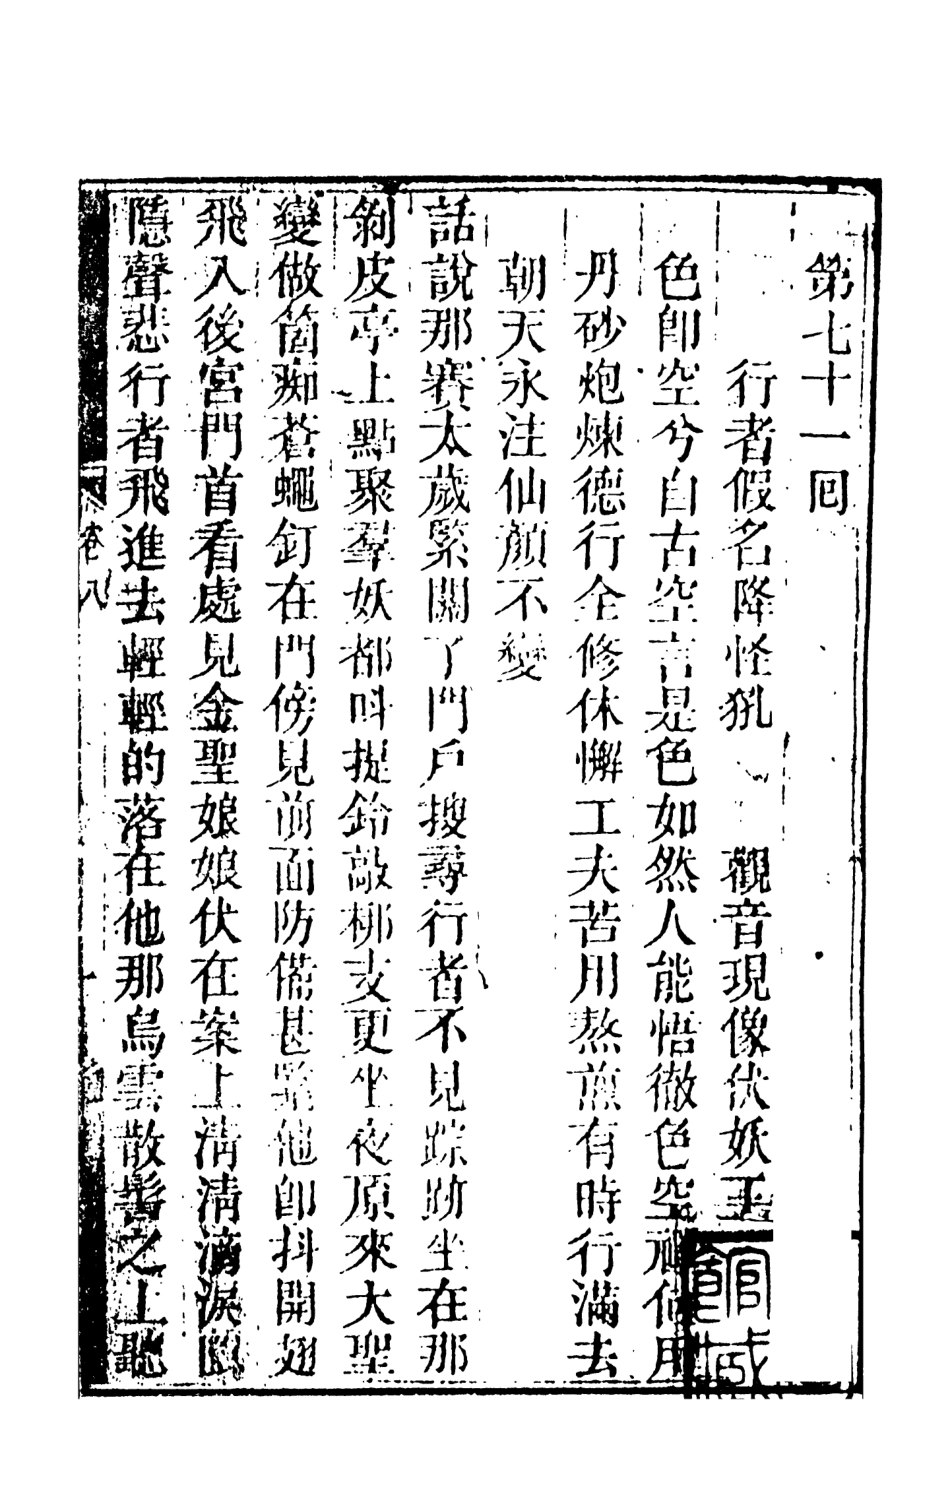 第七十一回
行者假名降怪犼　觀音現像伏妖王
色卽空兮自古空言是色如然人能悟徹色空禪何用
丹砂炮煉德行全修休懈工夫苦用熬煎有時行滿去
朝天永注仙顏不變
話說那賽太歲緊關了門戶搜尋行者不見踪跡坐在那
剝皮亭上點聚羣妖都叫提鈴敲梆支更坐夜原來大聖
變做箇痴蒼蠅釘在門傍見前面防備甚緊他卽抖開翅
飛入後宮門首看處見金聖娘娘伏在案上淸淸滴淚
隱聲悲行者飛進去輕輕的落在他那烏雲散髻之上聽
卷八
館藏